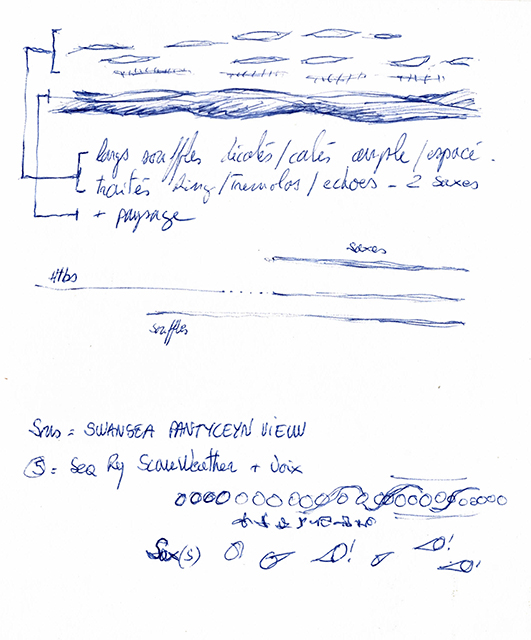 longs souffles décalés/calés ample/espacé.
traités /tremolos/echoes - 2 saxes
+ paysage
saxes
Htbs
souffles
Sons = SWANSEA PANTYCEYN VIEUW
S = Sea + Voix
Sax(s)